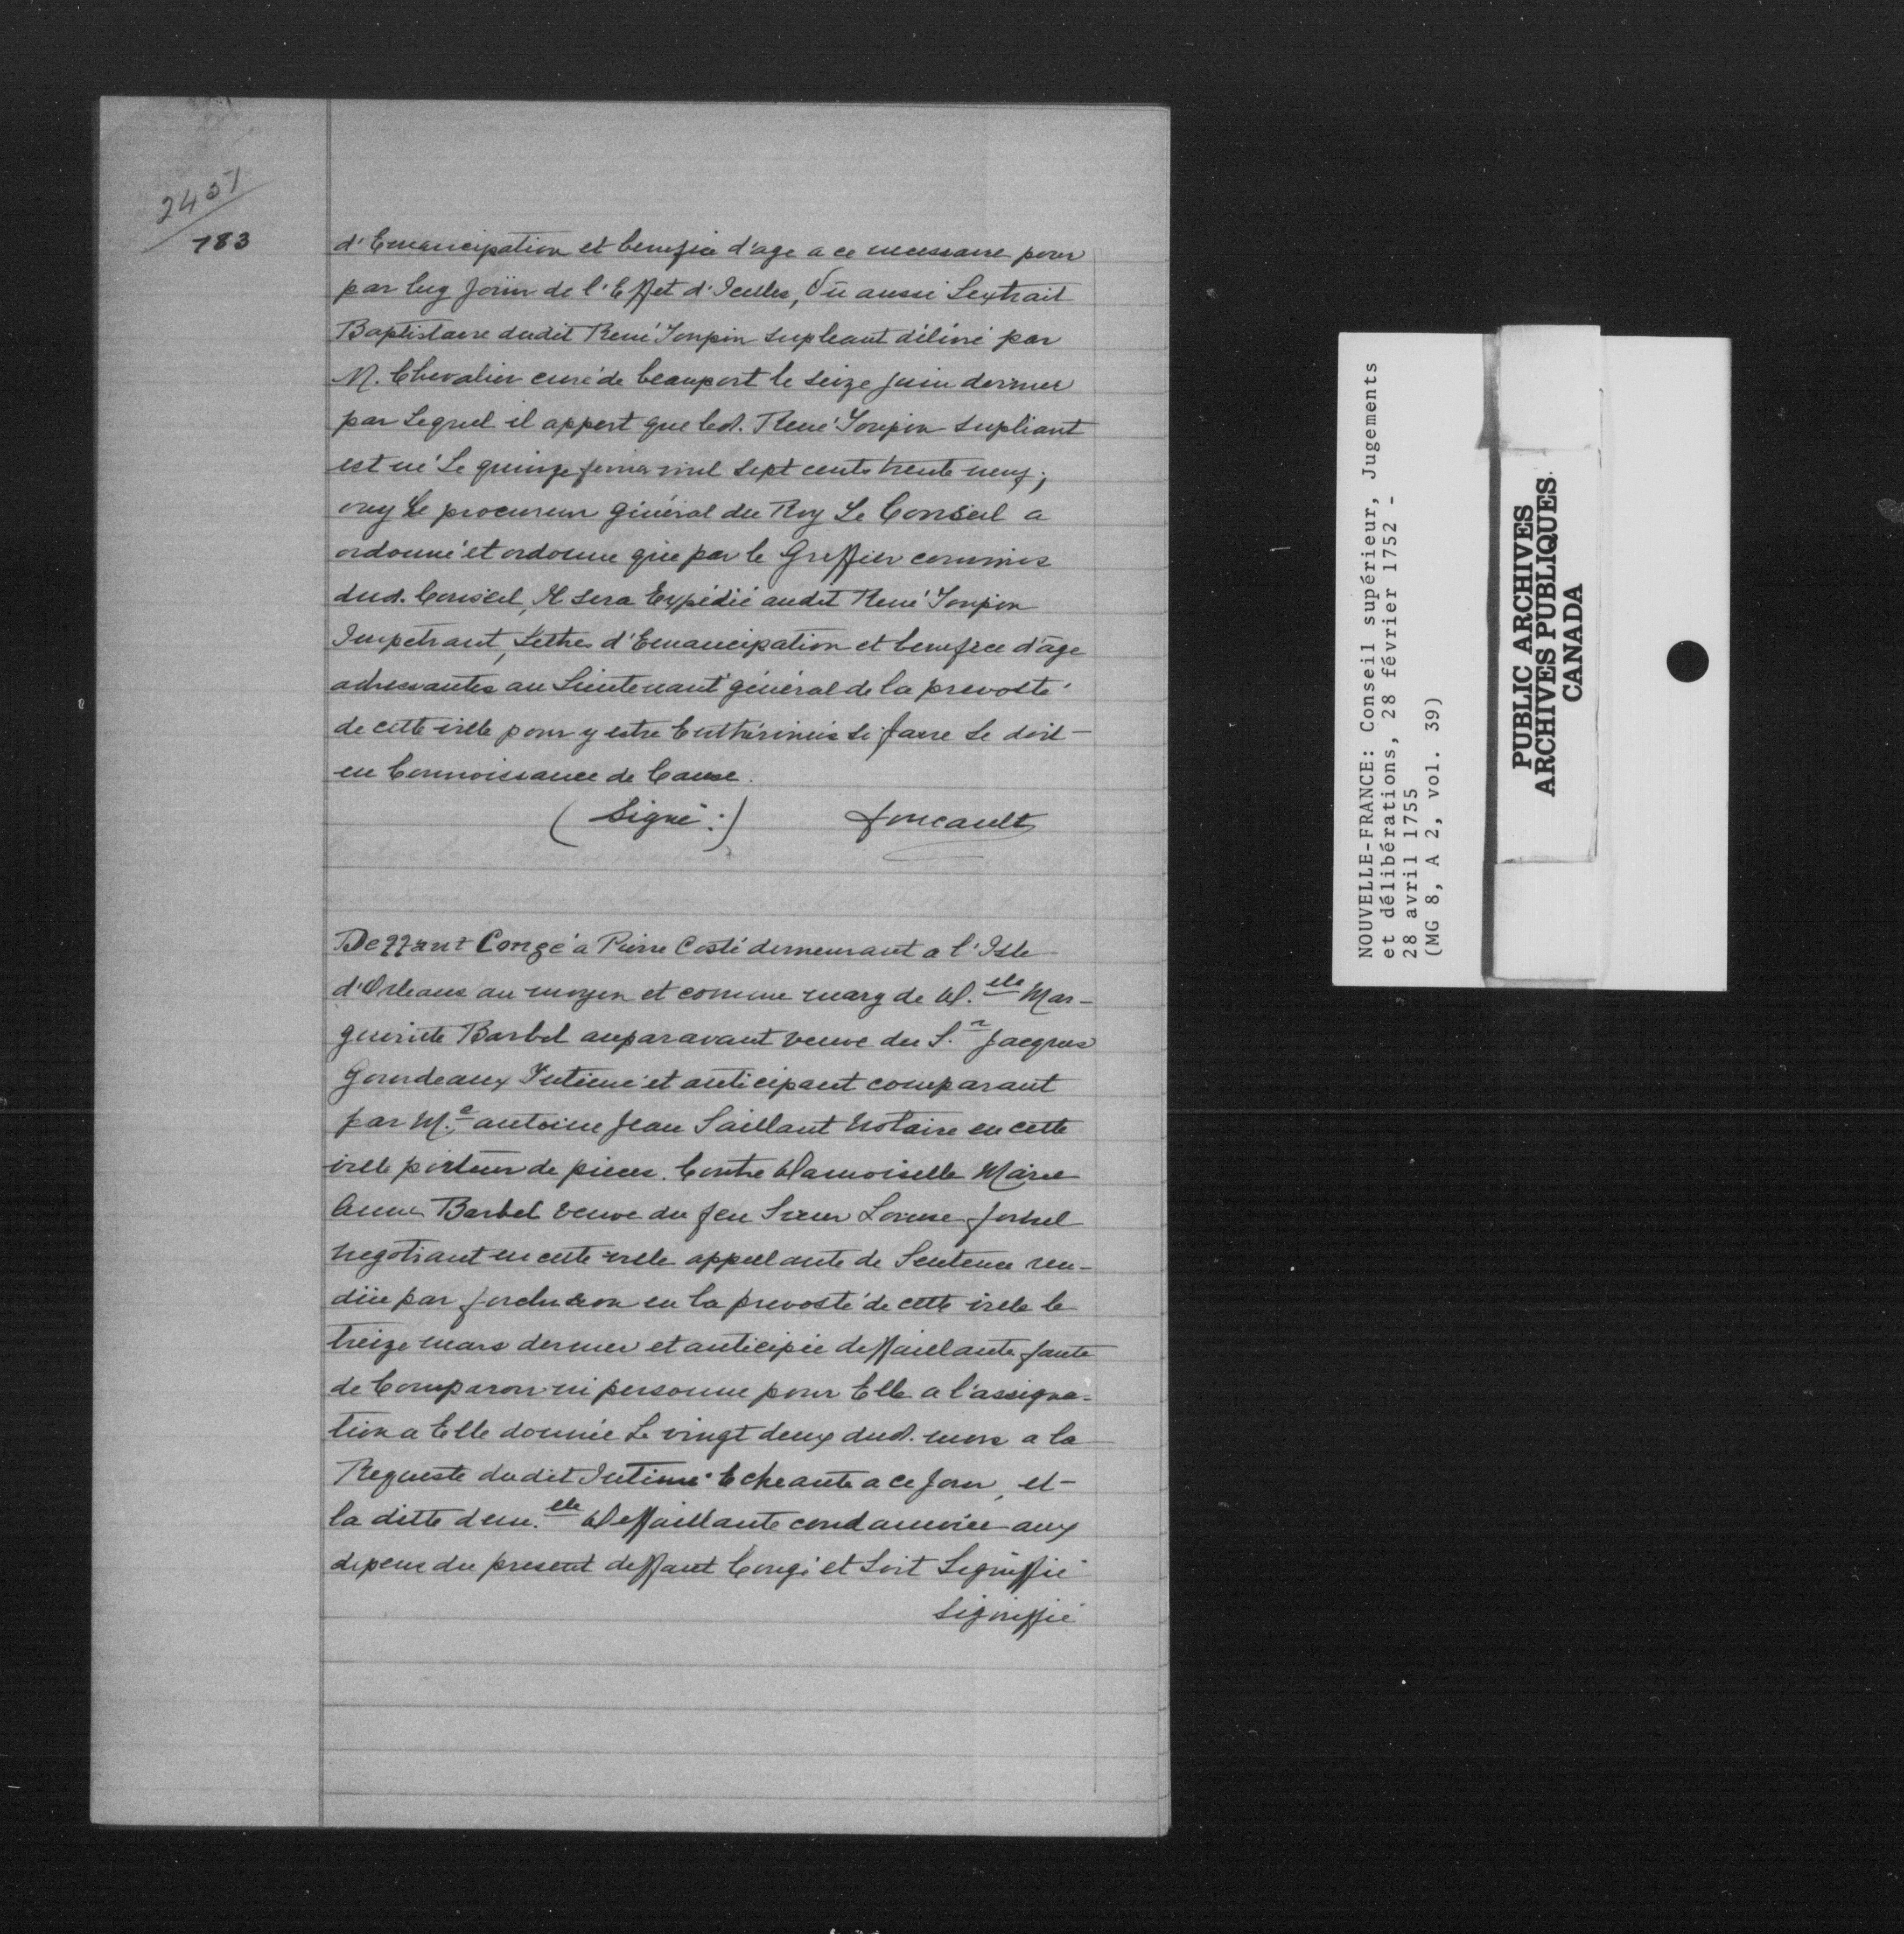 2401
183
d'Emancipation et benefice d'age a ce necessaire pour
par luy Joüir de l'Effet d'Icelles, Vü aussi Lextrait
Baptistaire dudit René Toupin supleant délivré par
M. Chevalier curé de beauport le seize Juin dernier
par Lequel il appert que led. René Toupin supliant
est né Le quinze fevrier mil sept cents trente neuf;
ouy Le procureur général du Roy Le Conseil a
ordonné et ordonne que par le Greffier commis
dud. Conseil, Il sera Expédié audit René Toupin
Impetrant, Lettres d'Emancipation et benefice d'âge
adressantes au Lieutenant général de la prevosté
de cette ville pour y estre Enthérinées si faire se doit -
en Connoissance de Cause.
(Signé:) foucault
Deffaut Congé a Pierre Costé demeurant a l'Isle
d'Orleans au moyen et comme mary de d.elle Mar-
guerite Barbel auparavant veuve du S.r Jacques
Gourdeaux Intimé et anticipant comparant
par M.e antoine Jean Saillant Notaire en cette
ville porteur de pieces. Contre damoiselle Marie
Anne Barbel veuve du feu Sieur Louis fornel
negotiant en cette ville appellante de Sentence ren-
düe par forclusion en la prevosté de cette ville le
treize mars dernier et anticipée deffaillante faute
de Comparoir ni personne pour Elle a l'assigna-
tion a Elle donnée Le vingt deux dud. mois a la
Requeste dudit Intimé Echeante a ce Jour, et -
la ditte dem.elle deffaillante condamnée aux
depens du present deffaut Congé et Soit Signiffié
Signiffié
NOUVELLE-FRANCE: Conseil supérieur, Jugements
et délibérations, 28 février 1752 -
28 avril 1755
(MG 8, A 2, vol. 39)
PUBLIC ARCHIVES
ARCHIVES PUBLIQUES
CANADA